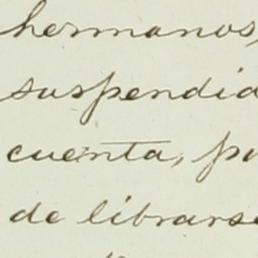 hermanos,
suspendid
cuenta, pu
de librars